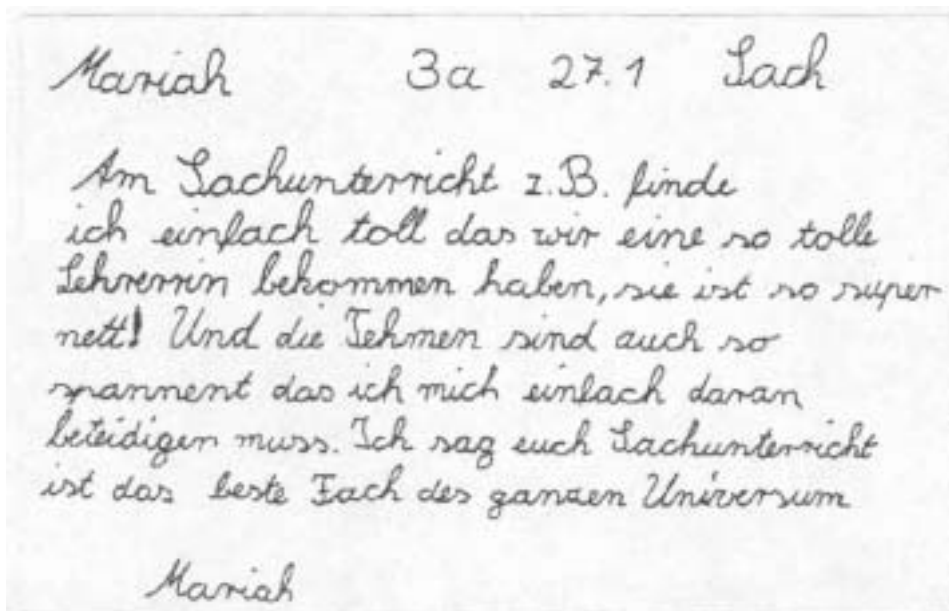 Mariah 3a 27.1 Sach
Am Sachunterricht z.B. finde
ich einfach toll das wir eine so tolle
Lehrerrin bekommen haben, sie ist so super
nett! Und die Tehmen sind auch so
spannent das ich mich einfach daran
beteidigen muss. Ich sag euch Sachunterricht
ist das beste Fach des ganzen Universum
Mariah